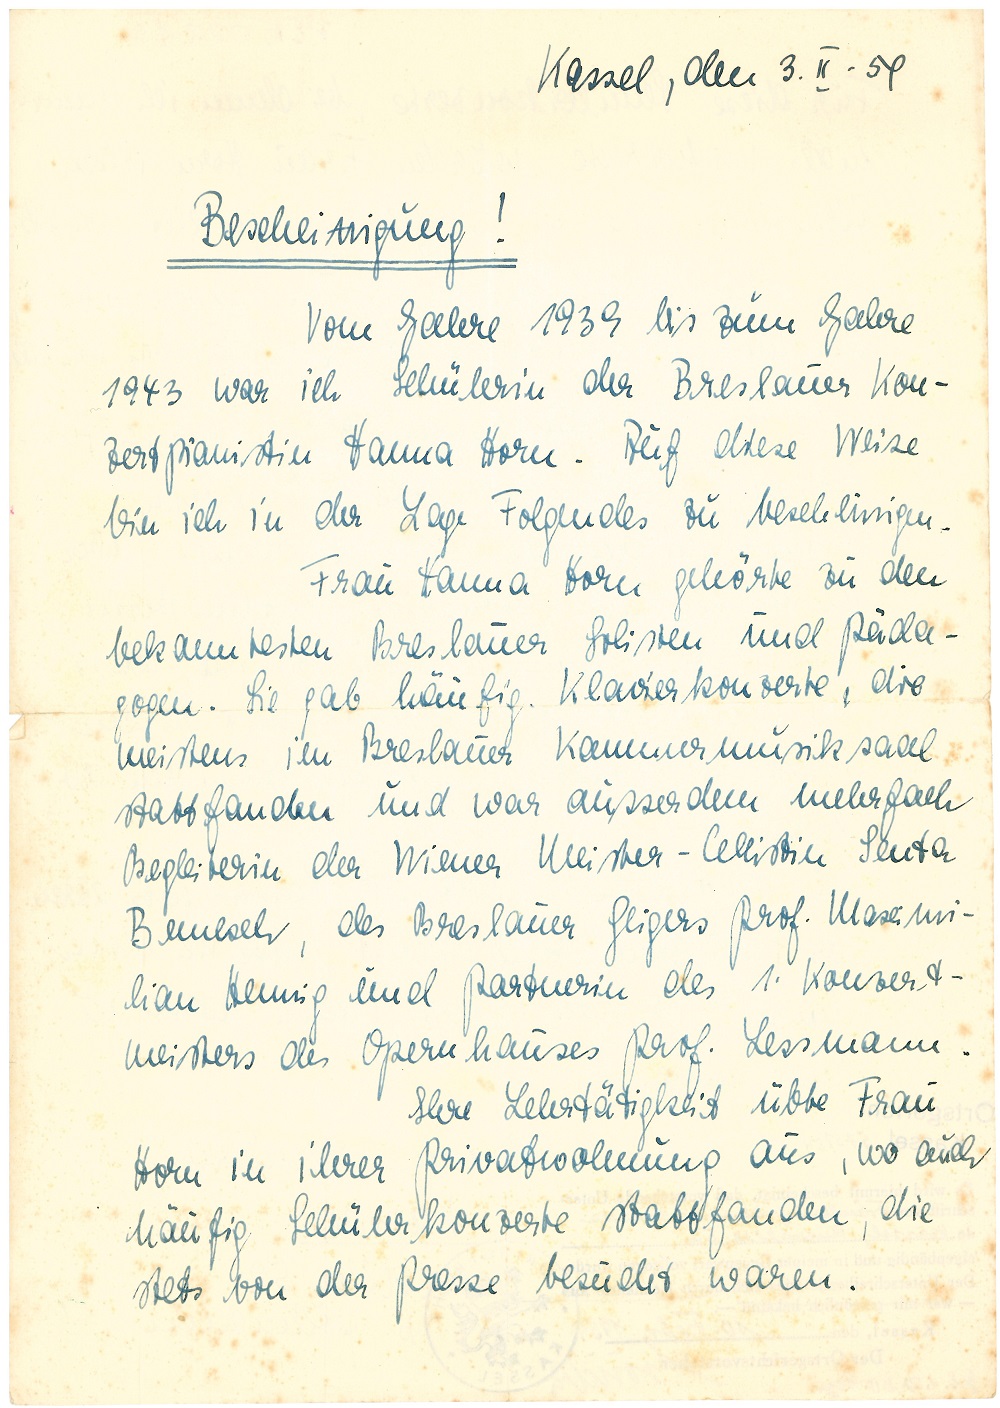 Kassel, den 3. II. 54
Bescheinigung!
Vom Jahre 1939 bis zum Jahre
1943 war ich Schülerin der Breslauer Kon-
zertpianistin Hanna Horn. Auf diese Weise
bin ich in der Lage Folgendes zu
Frau Hanna Horn gehörte zu den
bekanntesten Breslauer Solisten und Päda-
gogen. Sie gab häufig Klavierkonzerte, die
meistens im Breslauer Kammermusiksaal
stattfanden und war ausserdem mehrfach
Begleiterin der Wiener Meister-Cellistin Senta
Benesch, des Breslauer Geigers Prof. Maximi-
lian Hennig und Partnerin des 1. Konzert-
meisters des Opernhauses Prof. Lessmann.
Ihre Lehrtätigkeit übte Frau
Horn in ihrer Privatwohnung aus, wo auch
häufig Schülerkonzerte stattfanden, die
stets von der Presse besucht waren.